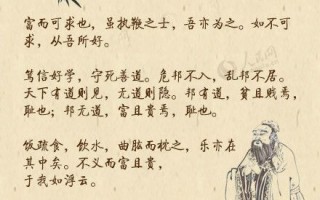 富而可求也，虽执鞭之士，吾亦为之。如不可
求，从吾所好。
笃信好学，守死善道。危邦不入，乱邦不居。
天下有道则见，无道则隐。邦有道，貧且贱焉，
耻也；邦无道，富且貴焉，耻也。
饭疏食，饮水，曲肱而枕之，乐亦在
其中矣。不义而富且貴，
于我如浮云。